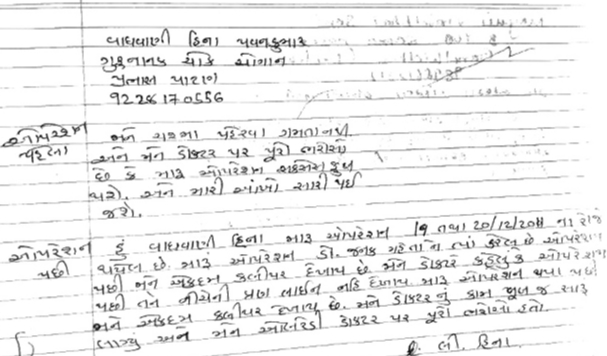 વાધવાણી હિના પવનકુમાર
ગુરુનાનક ચોક
પ્રભાસ પાટણ
9228170556
ઓપરેશન પહેલા
મને ચશ્મા પહેરવા ગમતા નથી
અને મને ડોક્ટર પર પૂરો ભરોસો
છે કે મારૂ ઓપરેશન સક્સેસ ફુલ
થશે. અને મારી આંખો સારી થઈ
જશે.
ઓપરેશન પછી
હું વાધવાણી હિના મારૂ ઓપરેશન 19 તથા 20/12/2011 ના રોજ
થયેલ છે. મારૂં ઓપરેશન ડો. જનક મહેતા ને ત્યાં કરેલ છે ઓપરેશન
પછી મને એકદમ કલીયર દેખાય છે મને ડોક્ટરે કહેલું કે ઓપરેશન
પછી તને નીચેની ત્રણ લાઈન નહિ દેખાય. મારૂ ઓપરેશન થયા પછી
મને એકદમ કલીયર દેખાય છે. મને ડોક્ટરનું કામ ખૂબ જ સારૂ
લાગ્યુ અને મને ડોક્ટર પર પૂરો ભરોસો હતો.
લી. હિના.